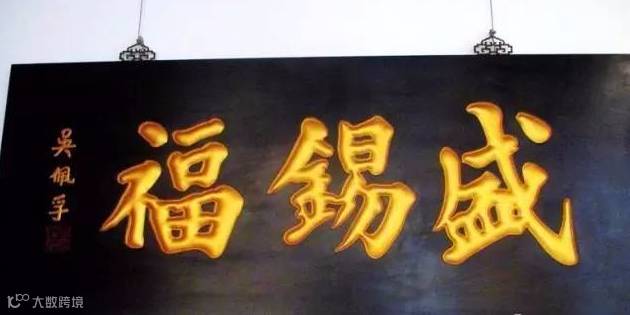 盛錫福
吳佩孚
大数跨境